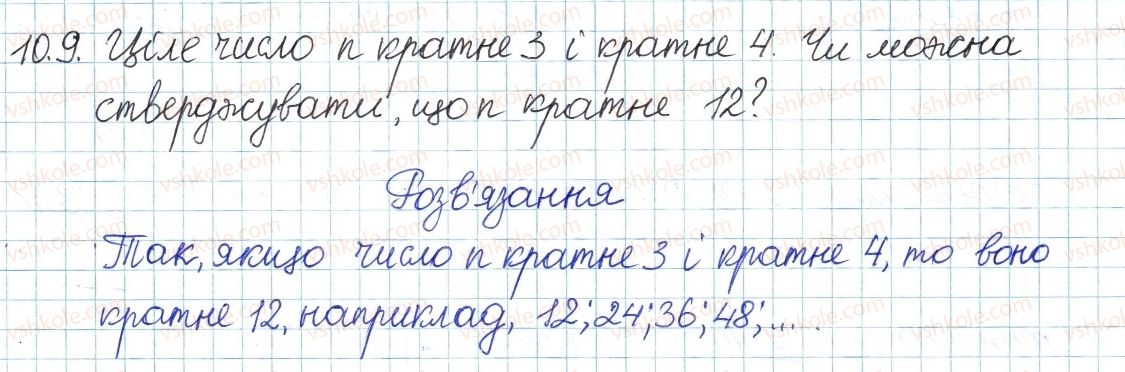 10.9. Ціле число n кратне 3 і кратне 4. Чи можна
стверджувати, що n кратне 12?
Розв'язання
Так, якщо число n кратне 3 і кратне 4, то воно
кратне 12, наприклад, 12; 24; 36; 48; .....